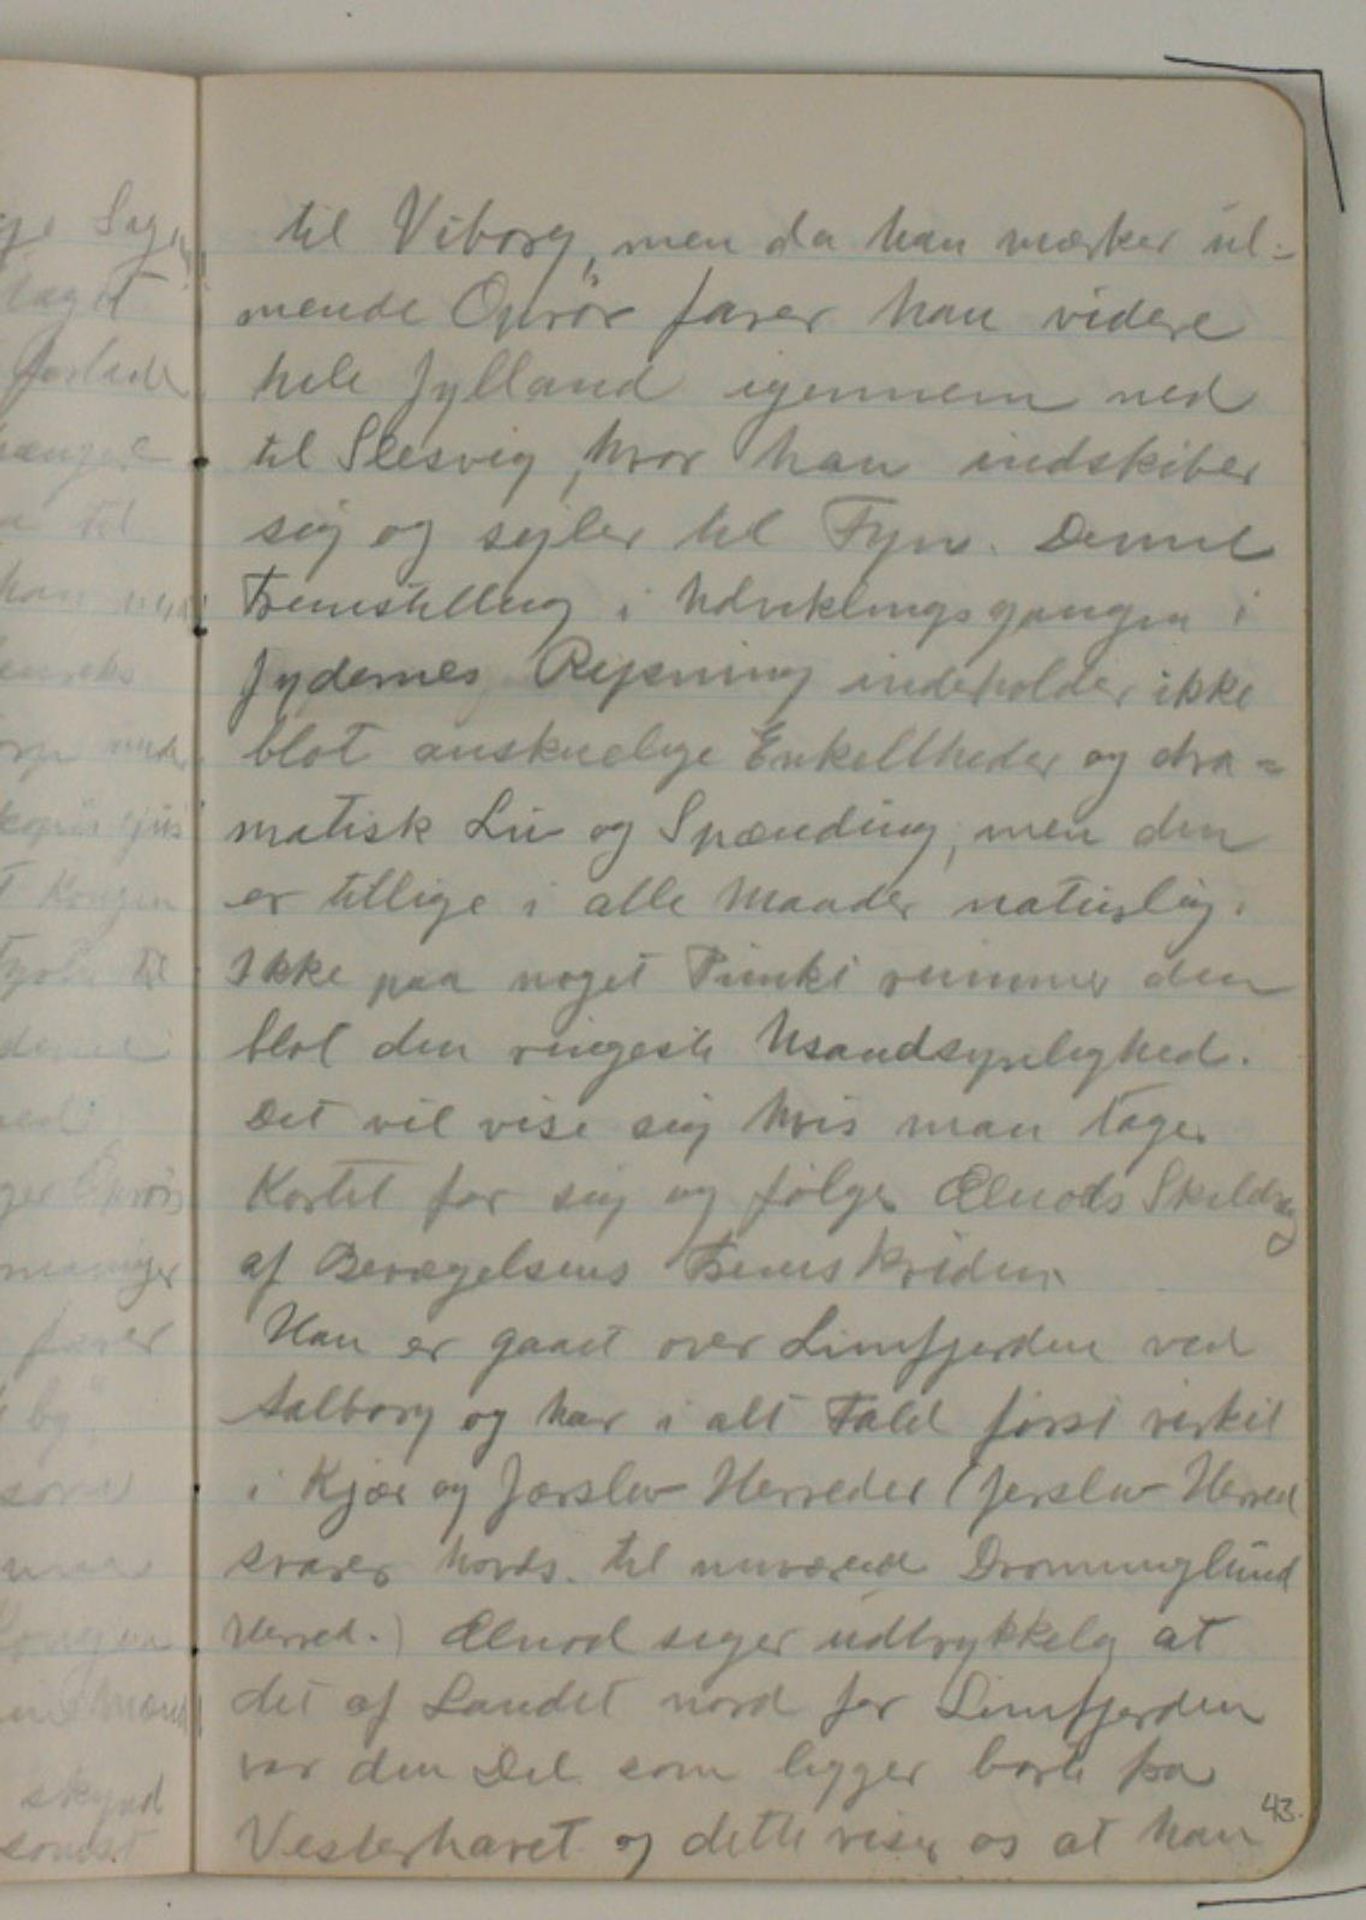 til Viborg, men da han mærker ul-
mende Oprør farer han videre
hele Jylland igennem ned
til Slesvig, hvor han indskiber
sig og sejler til Fyn. Denne
Fremstilling i Udviklingsgangen i
Jydernes Rejsning indeholder ikke
blot anskuelige Enkeltheder og dra=
matisk Liv og Spænding, men den
er tillige i alle Maader naturlig.
Ikke paa noget Punkt rummer den
blot den ringeste Usandsynlighed.
Det vil vise sig hvis man tager
Kortet for sig og følger Ælnods Skildring
af Bevægelsens Fremskriden.
Han er gaaet over Limfjorden ved
Aalborg og har i alt Fald først virket
i Kjær og Jerslev Herreder (Jerslev Herred
svarer hovds. til nuværende Dronninglund
Herred.) Ælnod siger udtrykkelig at
det af Landet nord for Limfjorden
var den Del som ligger borte fra
Vesterhavet og dette viser os at han
43.
taget
til
skynd